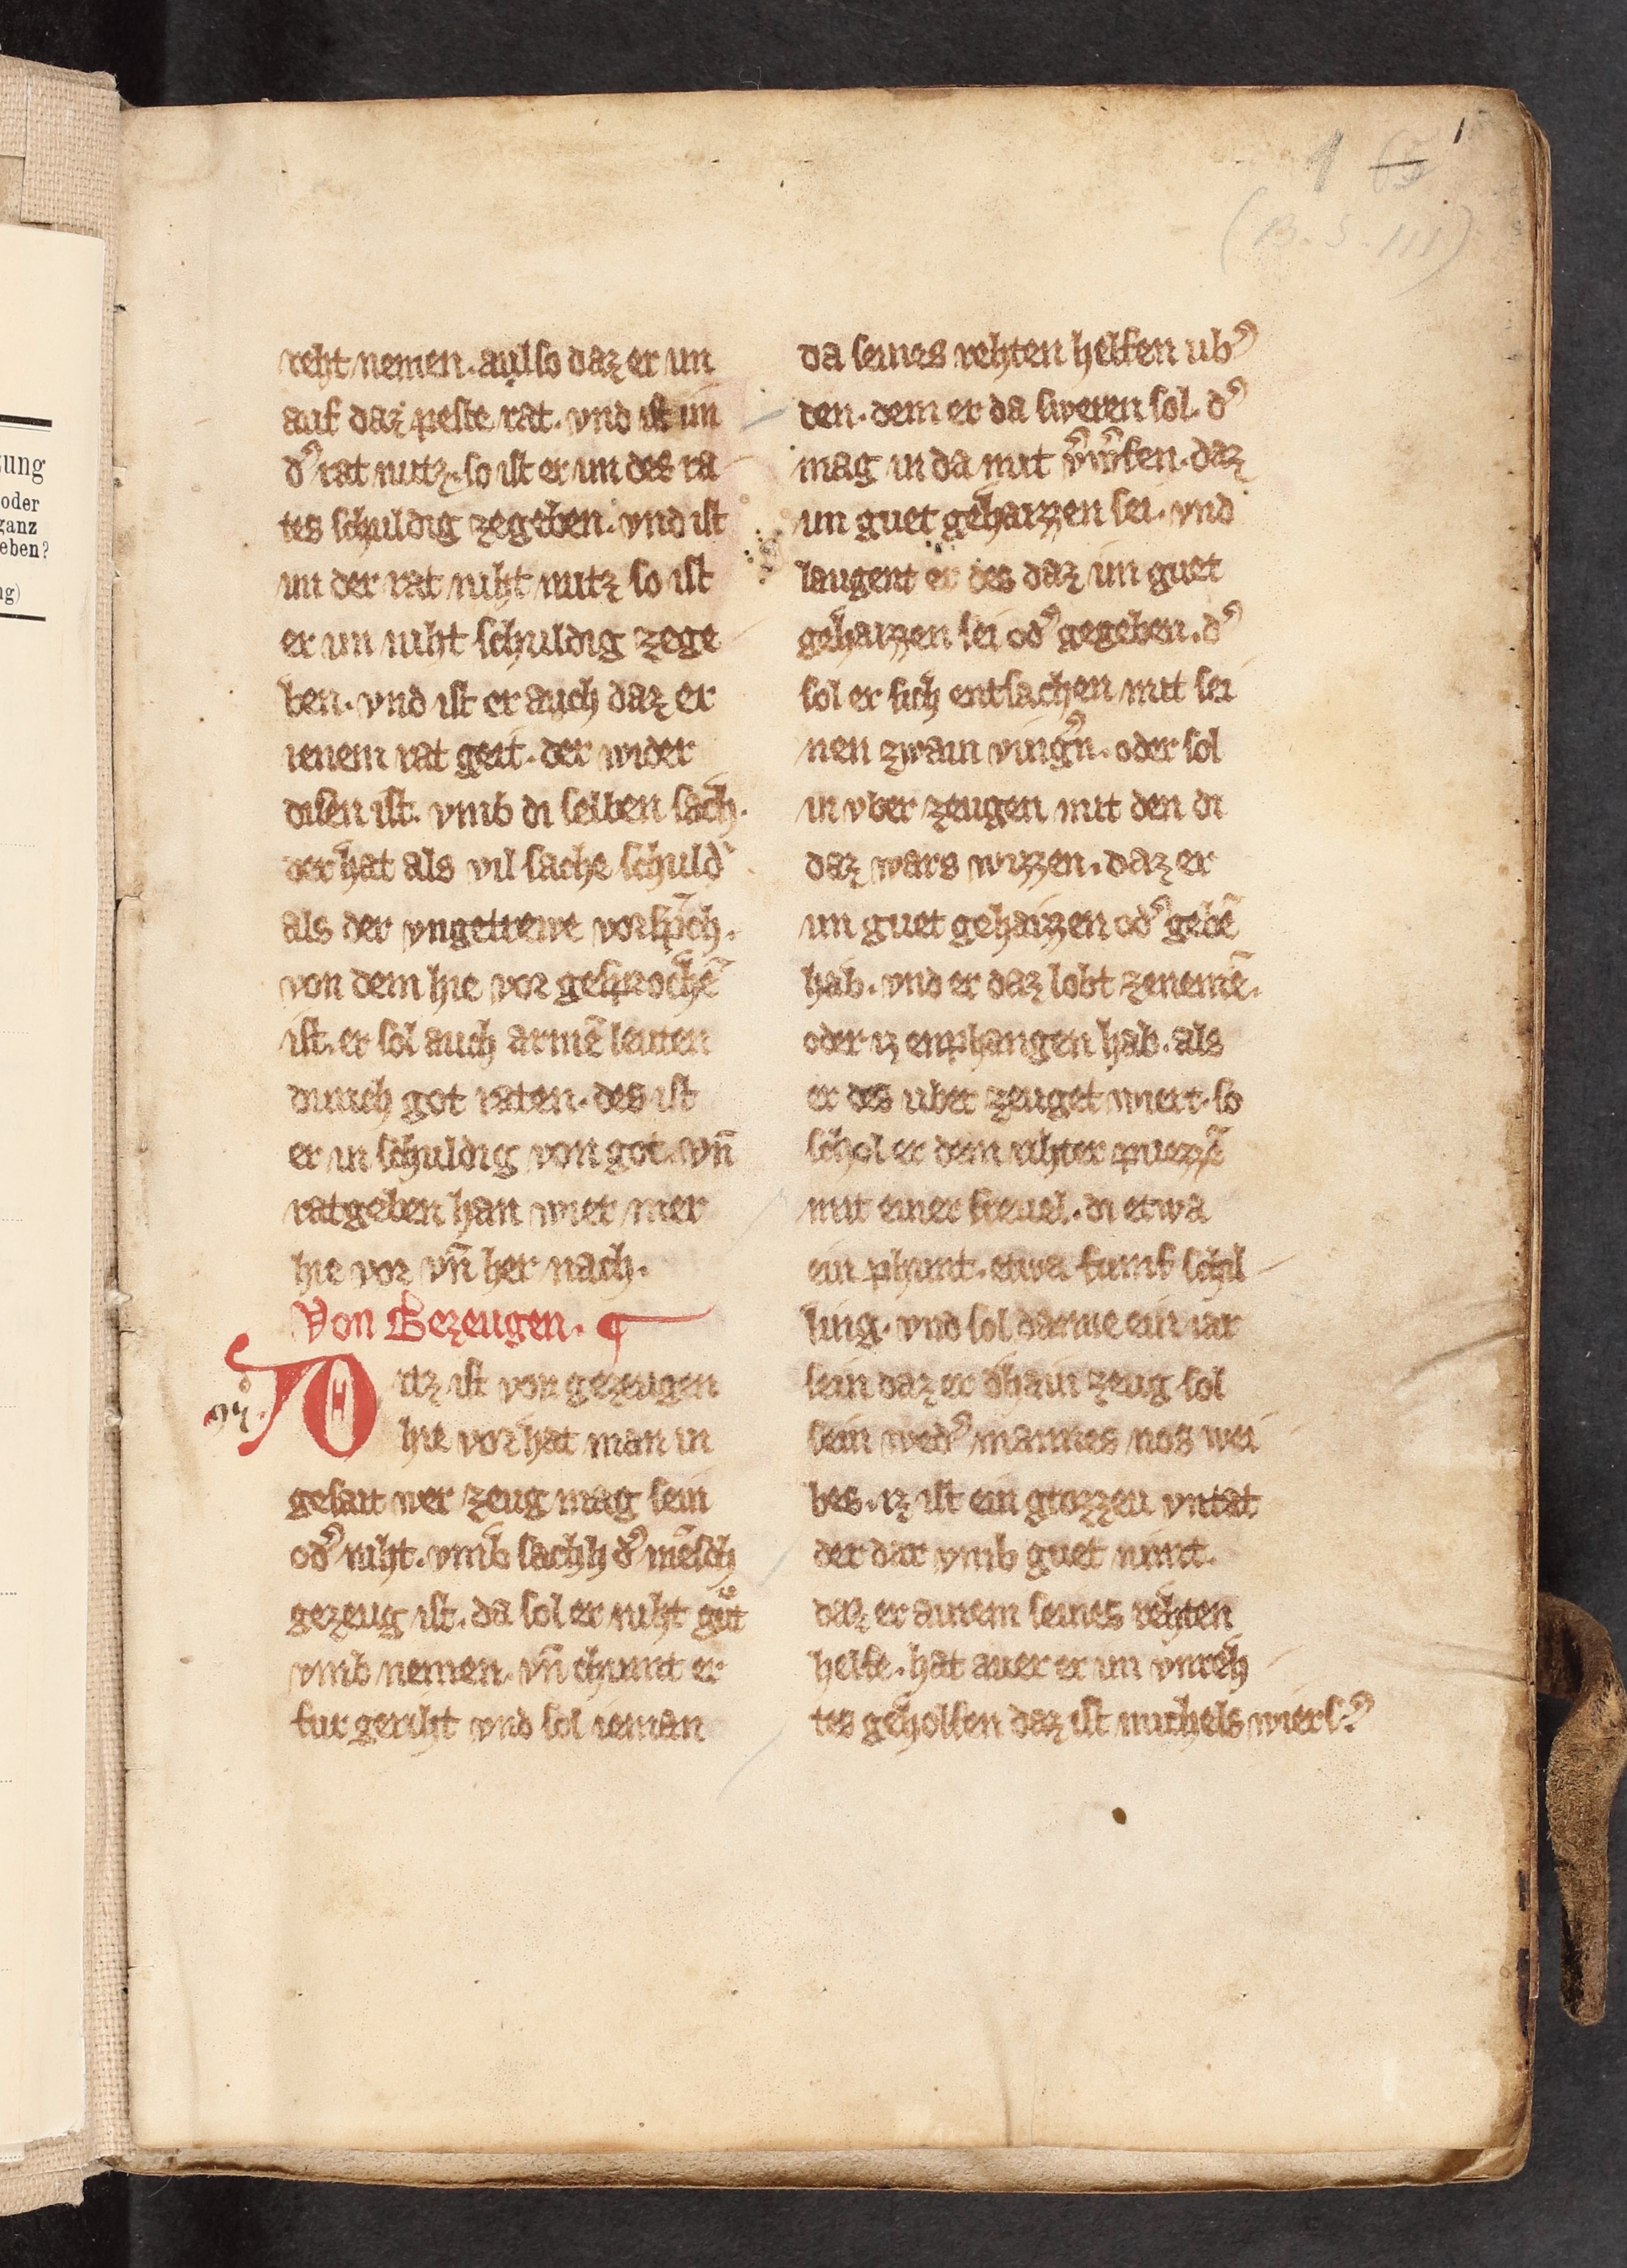 1 65 1
(B. S. III)
reht nemen. aulso daz er im
auf daz peste rat. vnd ist im
dˀ rat nutz. so ist er im des ra
tes schuldig zegeben. vnd ist
im der rat niht nutz so ist
er im niht schuldig zege
ben. vnd ist er auch daz er
ienem rat geit. der wider
disen ist. vmb di selben sach.
der hat als vil sache schuld
als der vngetrewe vorspͣch.
von dem hie vor gesprochē
ist. er sol auch armē leuten
durich got raten. des ist
er in schuldig von got. vn̄
ratgeben han wier mer
hie vor vn̄ her nach.
Von Gezeugen. ¶
ditz ist von gezeugen
hie vor hat man in
gesait wer zeug mag sein
odˀ niht. vmb sachh dˀ mēsch
gezeug ist. da sol er niht guͦt
vmb nemen. vn̄ chumt er
fur geriht vnd sol ieman
da seines rehten helfen ubˀ
den. dem er da sweren sol. dˀ
mag in da mit vˀwˀfen. daz
im guet gehaizzen sei. vnd
laugent er des daz im guet
gehaizzen sei odˀ gegeben. dˀ
sol er sich entsachen mit sei
nen zwain vingˀn. oder sol
in vber zeugen mit den di
daz wars wizzen. daz er
im guet gehaizzen odˀ gebē
hab. vnd er daz lobt zenemē.
oder iz enphangen hab. als
er des uber zeuget wiert. so
schol er dem rihter puezzē
mit einer freuel. di etwa
ein phunt. etwa fumf schil
ling. vnd sol darnve ein iar
sein daz er dhain zeug sol
sein wedˀ mannes nos wei
bes. iz ist ein grozzeu vntat
der dar vmb guet nimt.
daz er ainem seines rehten
helfe. hat auer er im vnreh
tes geholfen daz ist michels wiersˀ